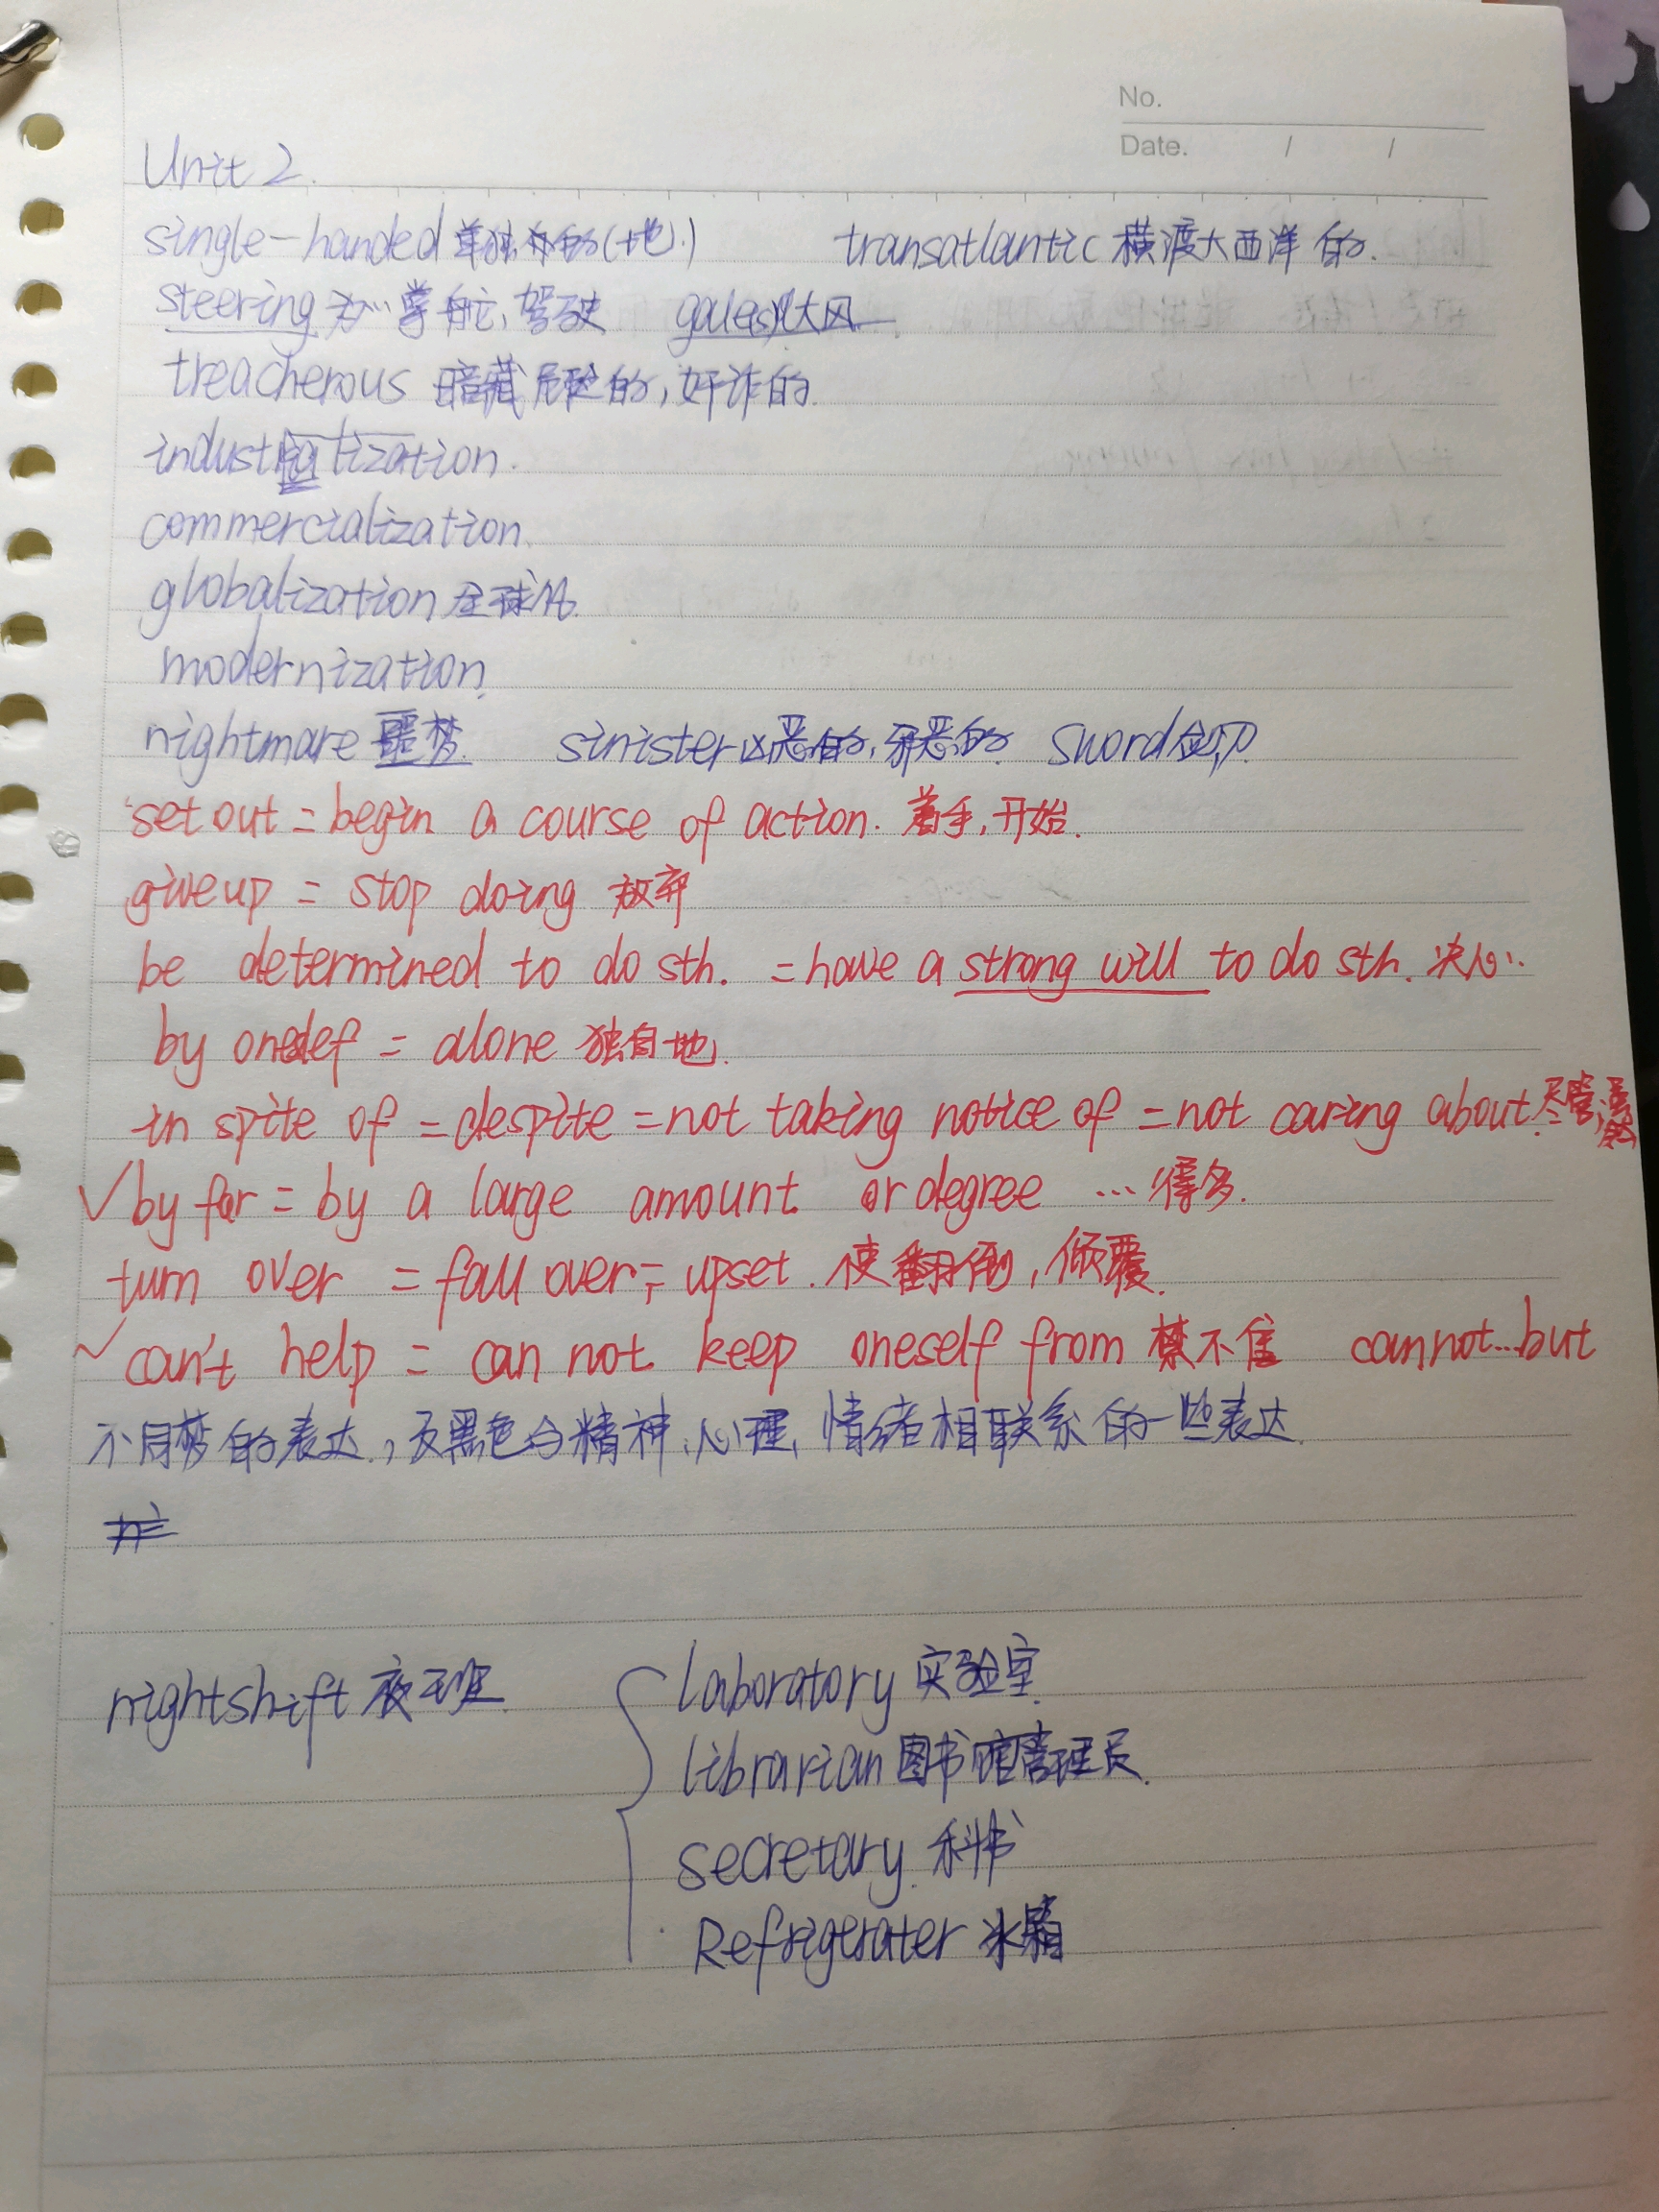 No.
Date. / /
Unit 2.
single-handed 单独的(地) transatlantic 横渡大西洋的.
steering 为…掌舵,驾驶 gales 大风
treacherous 暗藏危险的,奸诈的.
industrialization.
commercialization.
globalization 全球化.
modernization.
nightmare 噩梦. sinister 凶恶的,邪恶的. sword 剑,刀
set out = begin a course of action. 着手,开始.
give up = stop doing 放弃
be determined to do sth. = have a strong will to do sth. 决心…
by = alone 独自地.
in spite of = despite = not taking notice of = not caring about. 尽管,
✓ by far = by a large amount or degree …得多.
turn over = fall over = upset. 使翻倒,倾覆.
✓ can't help = can not keep oneself from 禁不住 cannot...but
不同梦的表达.,及黑色与精神、心理、情绪相联系的一些表达.
nightshift 夜班. laboratory 实验室.
librarian 图书馆管理员.
secretary. 秘书
Refrigerater 冰箱